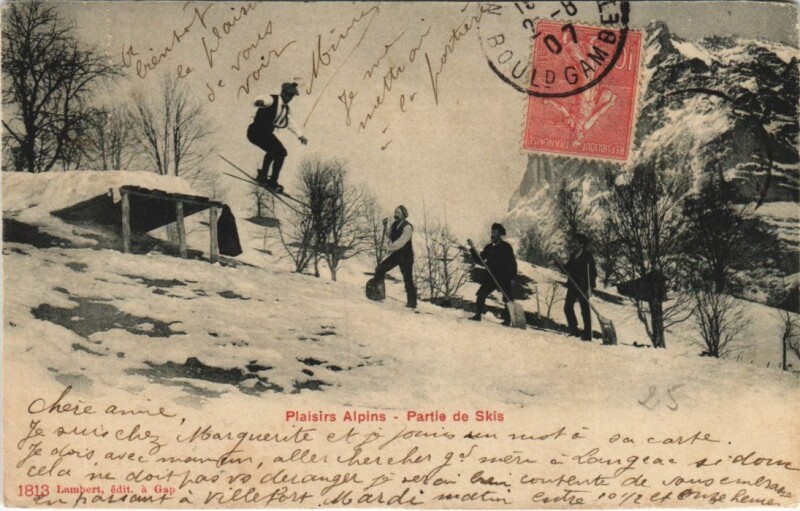 bientôt
le plaisir
de vous
voir
Mimi
Je me
mettrai
à la portière
BOULD GAMBE
07
10
RÉPUBLIQUE FRANÇAISE
25
Plaisirs Alpins - Partie de Skis
Chère amie,
Je suis chez Marguerite et je joins un mot à sa carte.
Je dois avec maman, aller chercher gd mère à Langeac si donc
cela ne doit pas vs déranger je serai bien contente de vous embrasser
en passant à Villefort Mardi matin entre 10 1/2 et onze heures
1813 Lambert, édit. à Gap